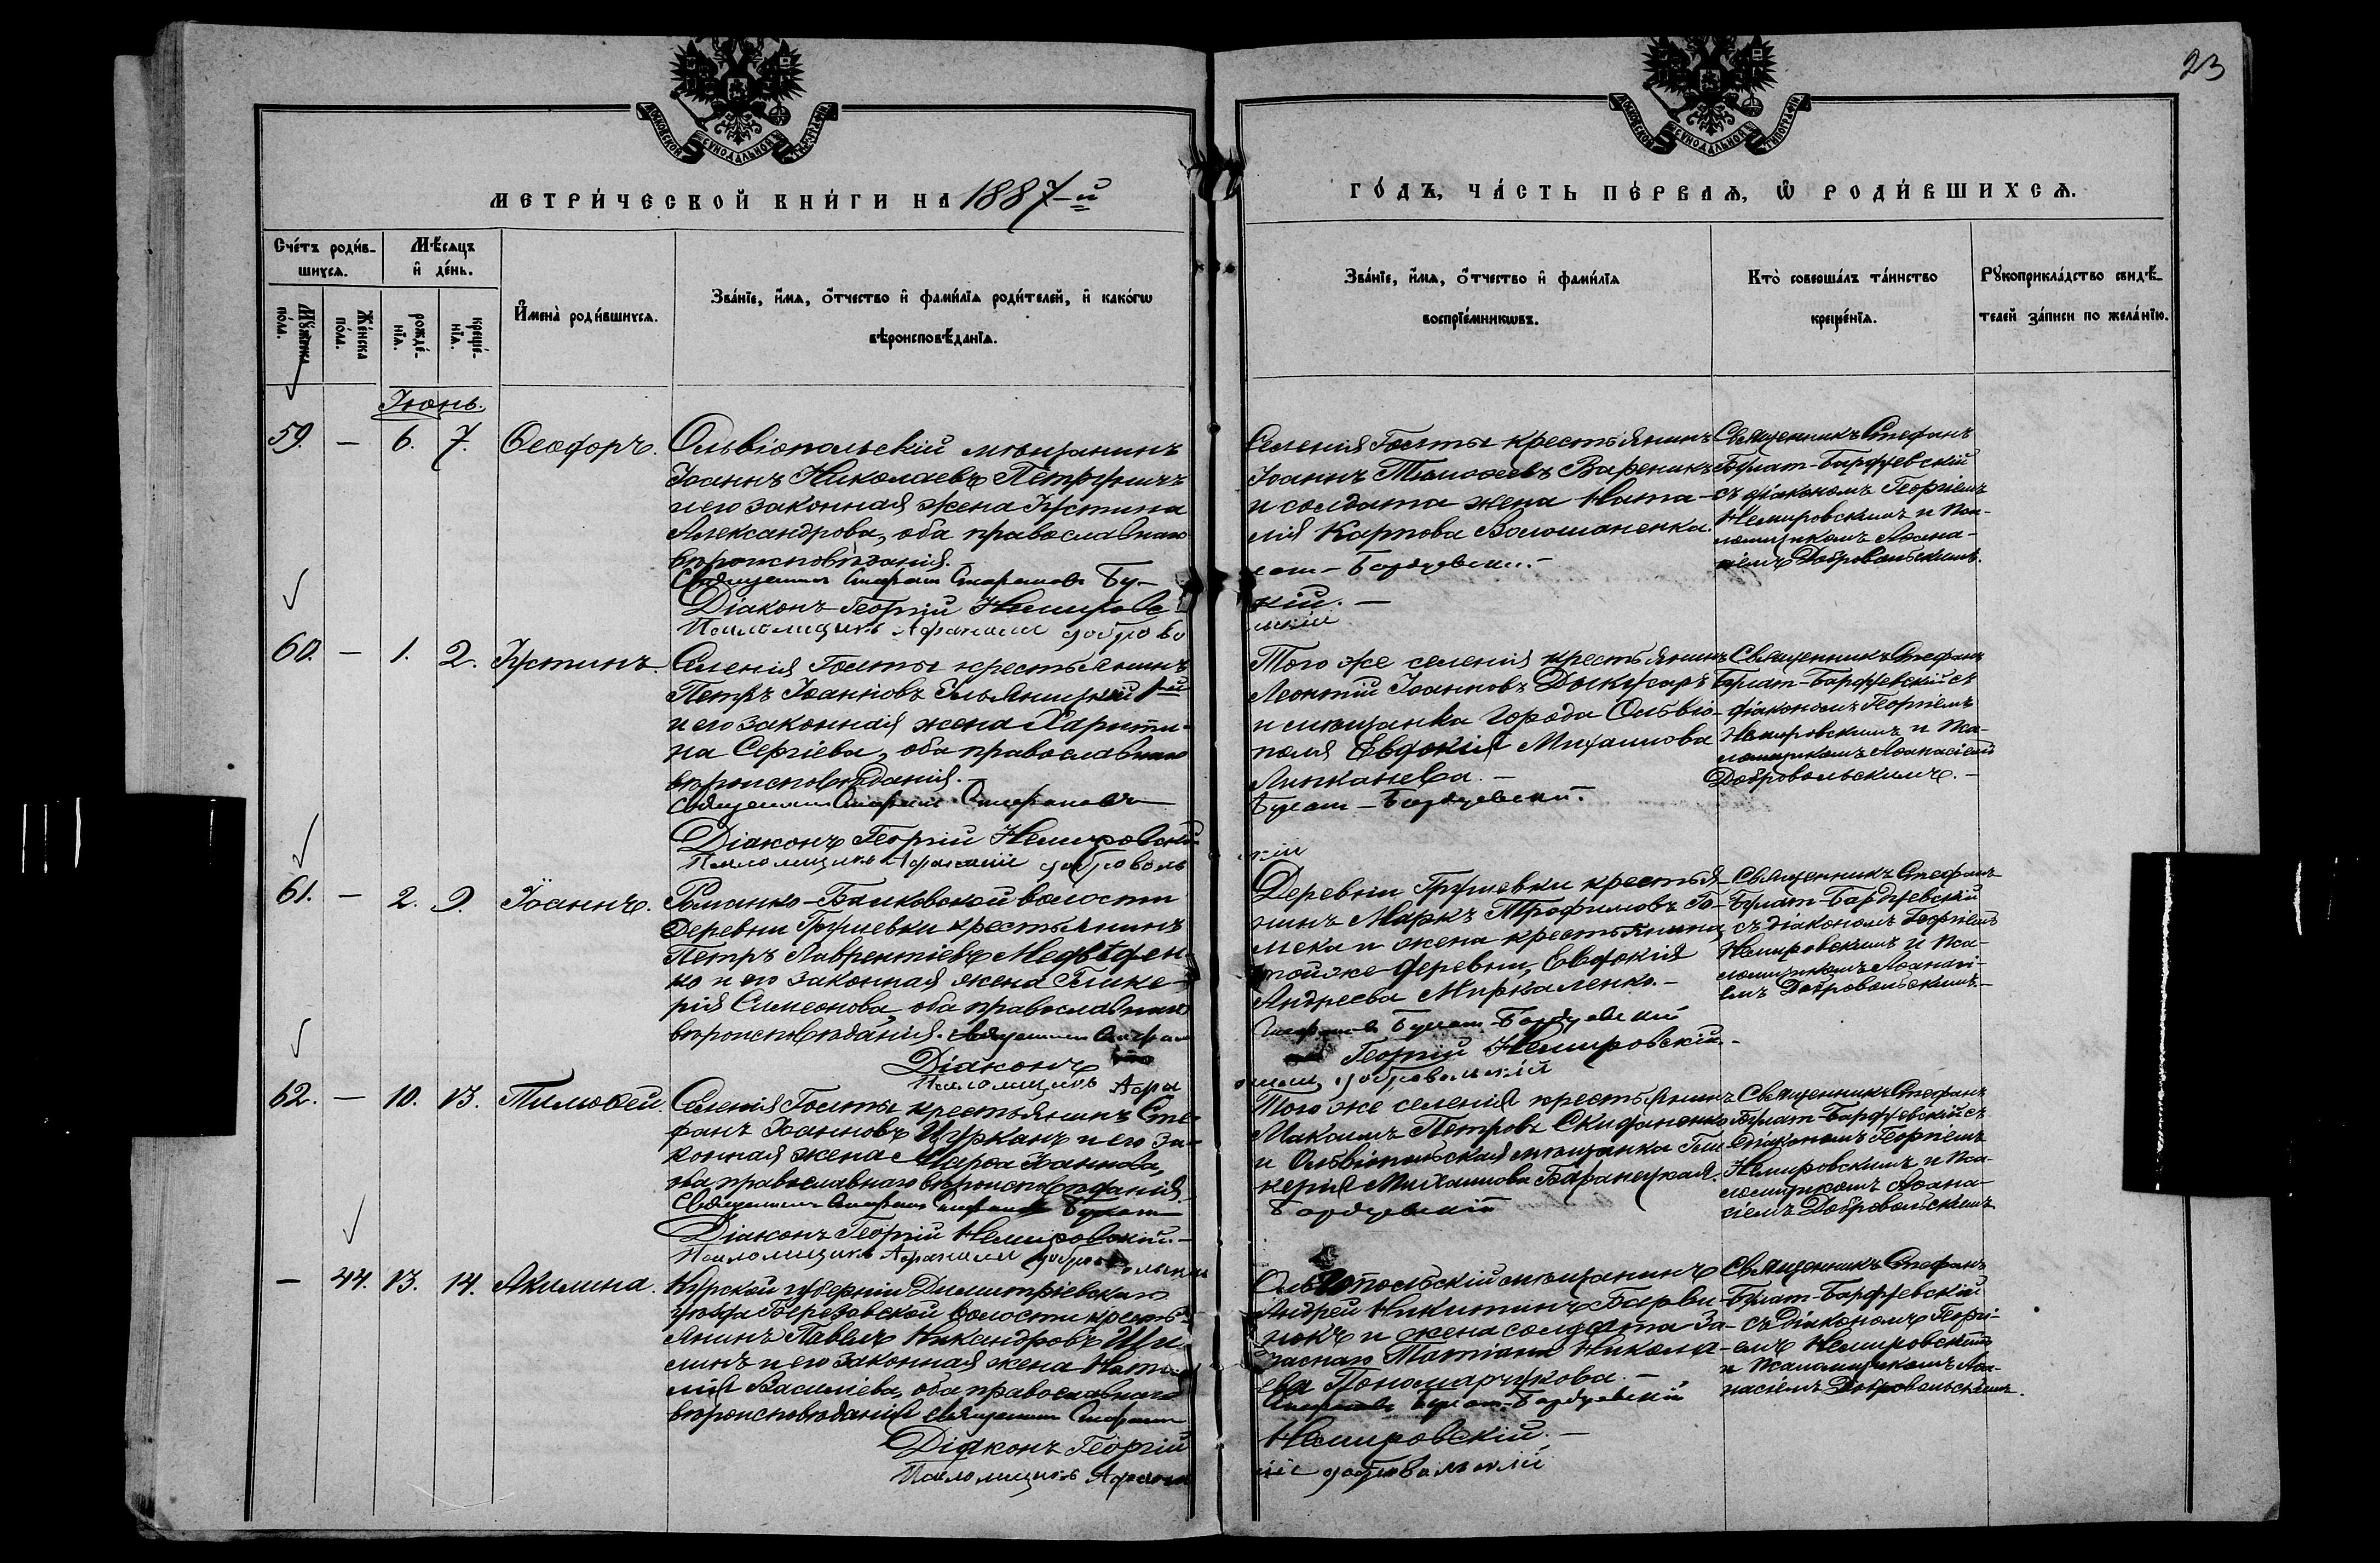 23
МОСКОВСКОЙ СУНОДАЛЬНОЙ ТИПОГРАФІИ
МОСКОВСКОЙ СУНОДАЛЬНОЙ ТИПОГРАФІИ
МЕТРИ́ЧЕСКОЙ КНИ́ГИ НА 1887-й
ГО́ДЪ, ЧА́СТЬ ПЕ́РВАѦ, Ѡ РОДИ́ВШИХСѦ.
Сче́тъ роди́в-
шихсѧ.
Мꙋ́жеска по́ла.
Же́нска по́ла.
Мѣ́сѧцъ
и҆ де́нь.
рожде́-
нїѧ.
креще́-
нїѧ.
И҆мена̀ роди́вшихсѧ.
Зва́нїе, и҆́мѧ, ѻ҆́тчество и҆ фамі́лїѧ роди́телей, и҆ како́гѡ
вѣроисповѣ́данїѧ.
Зва́нїе, и҆́мѧ, ѻ҆́тчество и҆ фамі́лїѧ
воспрїе́мникѡвъ.
Кто̀ соверша́лъ та́инство
креще́нїѧ.
Рꙋкоприкла́дство свидѣ́-
телей за́писи по жела́нїю.
Іюнь.
59. — 6. 7. Ѳеодоръ.
Ольвіопольскій мѣщанинъ
Іоаннъ Николаевъ
и его законная жена Іустина
Александрова, оба православнаго
вѣроисповѣданія.
Священникъ Стефанъ Стефановъ Бу-
Діаконъ Георгій Немировс
Псаломщикъ Афанасій Доброво
Селенія Голты крестьянинъ
Іоаннъ Тимоѳеевъ Вареникъ
и солдата жена Ната-
лія Карпова Волошаненка.
лат-Бардуевскій.-
кій.—
льскій
Священникъ Стефанъ
Булат-Бардуевскій
съ діакономъ Георгіемъ
Немировскимъ и пса-
ломщикомъ Аѳана-
сіемъ Добровольскимъ.
60. — 1. 2. Іустинъ.
Селенія Голты крестьянинъ
Петръ Іоанновъ Ульяницкій 1-й
и его законная жена Харити-
на Сергіева, оба православнаго
вѣроисповѣданія.—
Священникъ Стефанъ Стефановъ
Діаконъ Георгій Немировскій
Псаломщикъ Афанасій Доброволь
Того же селенія крестьянинъ
Леонтій Іоанновъ
и мѣщанка города Ольвіо-
поля Евдокія Михаилова
Булат-Бардуевскій.
скій
Священникъ Стефанъ
Булат-Бардуевскій съ
діакономъ Георгіемъ
Немировскимъ и пса-
ломщикомъ Аѳанасіемъ
Добровольскимъ.—
61. — 2. 9. Іоаннъ.
Романко-Балковской волости
деревни Грушевки крестьянинъ
Петръ Лаврентіевъ Медвѣден-
ко и его законная жена Глике-
рія Симеонова, оба православнаго
вѣроисповѣданія. Священникъ Стефанъ
Діаконъ
Псаломщикъ Афа
Деревни Грушевки крестья-
нинъ Маркъ Трофимовъ Го-
мека и жена крестьянина
той же деревни, Евдокія
Андреева Миркаленко.—
Стефановъ Булат-Бардуевскій
Георгій Немировскій.—
насій Добровольскій
Священникъ Стефанъ
Булат-Бардуевскій
съ діакономъ Георгіемъ
Немировскимъ и пса-
ломщикомъ Аѳанасі-
емъ Добровольскимъ.—
62. — 10. 13. Тимоѳей.
Селенія Голты крестьянинъ Сте-
фанъ Іоанновъ Цурканъ и его за-
конная жена Марѳа Іоаннова,
оба православнаго вѣроисповѣданія.
Священникъ Стефанъ Стефановъ Булат
Діаконъ Георгій Немировскій.—
Псаломщикъ Афанасій Добровольскій
Того же селенія крестьянинъ
Максимъ Петровъ Скифаненко
и Ольвіопольская мѣщанка Гли-
керія Михаилова Баранецкая.
Бардуевскій
Священникъ Стефанъ
Булат-Бардуевскій съ
діакономъ Георгіемъ
Немировскимъ и пса-
ломщикомъ Аѳана-
сіемъ Добровольскимъ
— 44. 13. 14. Акилина.
Курской губерніи Димитріевскаго
уѣзда Березовской волости кресть-
янинъ Павелъ Никандровъ Ши-
линъ и его законная жена Ната-
лія Василіева, оба православнаго
вѣроисповѣданія Священникъ Стефанъ
Діаконъ Георгій
Псаломщикъ Афанас
Ольвіопольскій мѣщанинъ
Андрей Никитинъ Барви-
нокъ и жена солдата за-
паснаго Татіана Никола-
ева Пономарчукова.—
Стефановъ Булат-Бардуевскій
Немировскій.—
ій Добровольскій
Священникъ Стефанъ
Булат-Бардуевскій
съ діакономъ Георгі-
емъ Немировскимъ
и псаломщикомъ Аѳа-
насіемъ Добровольскимъ.